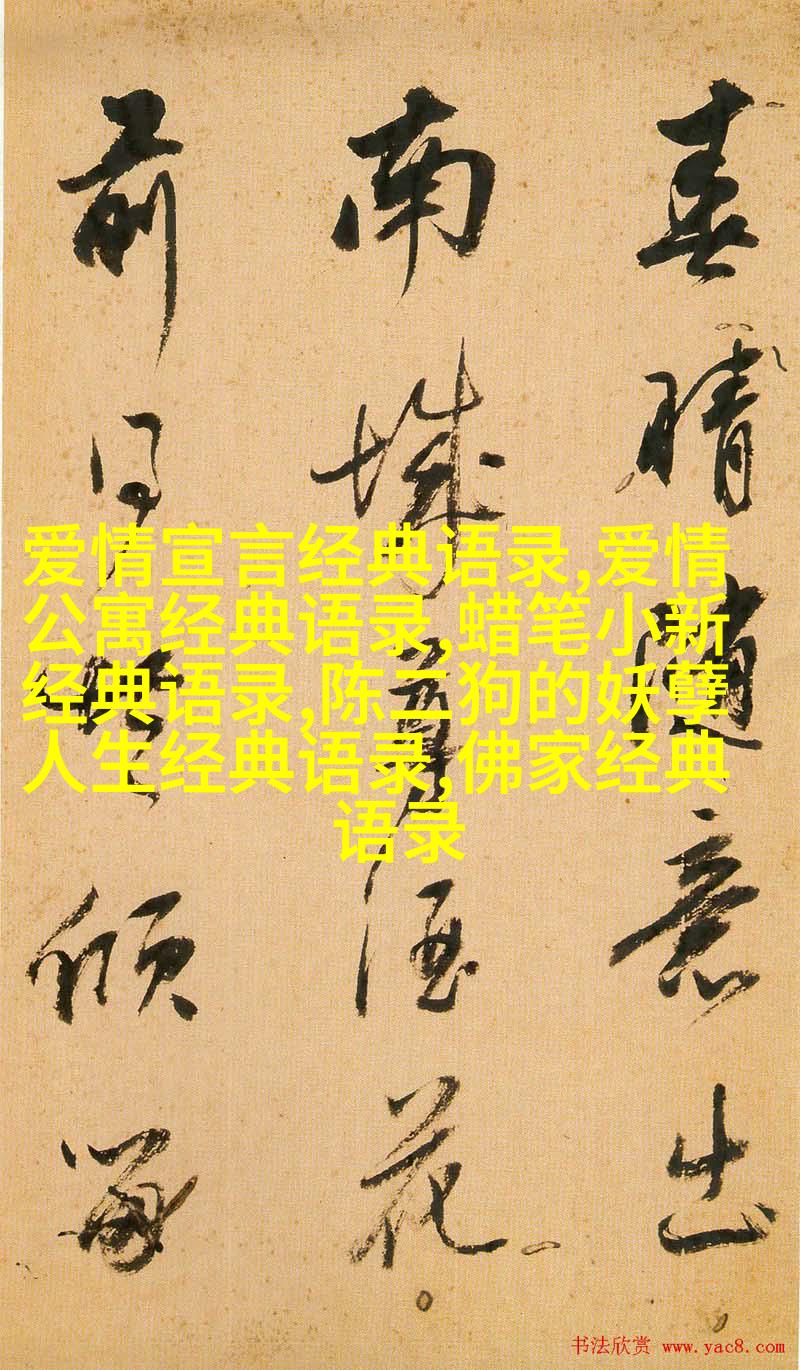 春晴隨意出
南城尊酒花
前同傾
爱情宣言经典语录,爱情
公寓经典语录,蜡笔小新
经典语录,陈二狗的妖孽
人生经典语录,佛家经典
语录
书法欣赏 www.yac8.com